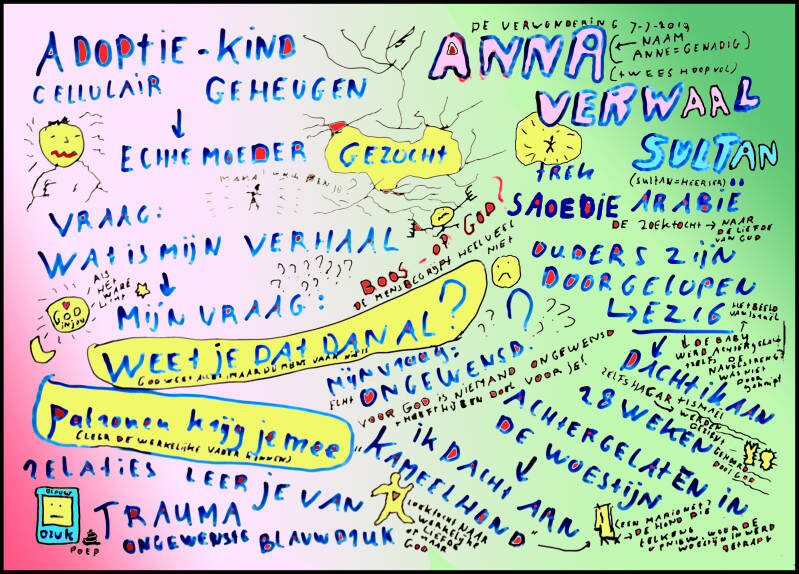 ADOPTIE-KIND
CELLULAIR GEHEUGEN
ECHTE MOEDER GEZOCHT
MAMA!
VRAAG:
WAT IS MIJN VERHAAL
????????
ALS HET WARE LICHT
GOD IN JOU
MIJN VRAAG:
WEET JE DAT DAN AL?
GOD WEET ALLES MAAR DE MENS VAAK NIET!!
PATRONEN KRIJG JE MEE
(LEER DE WERKELIJKE VADER KENNEN)
RELATIES LEER JE VAN
TRAUMA
ONGEWENSTE BLAUWDRUK
BLAUW
DRUK
POEP
DE VERWONDERING 7-7-2019
ANNA
(← NAAM
ANNE=GENADIG)
(TWEES HOOPVOL)
VERWAAL
SULTAN
(SULTAN=HEERSER)
TREK
SAOEDIE ARABIË
DE ZOEKTOCHT → NAAR
DE LIEFDE
VAN GOD
BOOS - OP GOD?
DE MENS BEGRIJPT HEEL VEEL
NIET
OUDERS ZIJN
DOORGELOPEN
EZ16
HET BEELD
VAN ISRAEL
DE BABY
WERD ACHTERGELATEN
ZELFS DE
NAVELSTRENG
WAS NIET
DOOR
GEKNIPT
MIJN VRAAG:
ECHT ONGEWENSD:
VOOR GOD IS NIEMAND ONGEWENSD
+ HEEFT HIJ EEN DOEL VOOR JE!
DACHT IK AAN
ZELFS HAGAR + ISMAEL
WERDEN
GEZIEN +
GEHOORD
DOOR GOD
28 WEKEN
ACHTERGELATEN IN
DE WOESTIJN
IK DACHT AAN
"KAMEELHOND"
ZOEKTOCHT NAAR
WERKELIJKE
LIEFDE
GOD
(EEN MARIONET?
→ DE HOND DIE
TELKENS
OPNIEUW VOOR DE
WOESTIJN IN WERD
GETRAPT